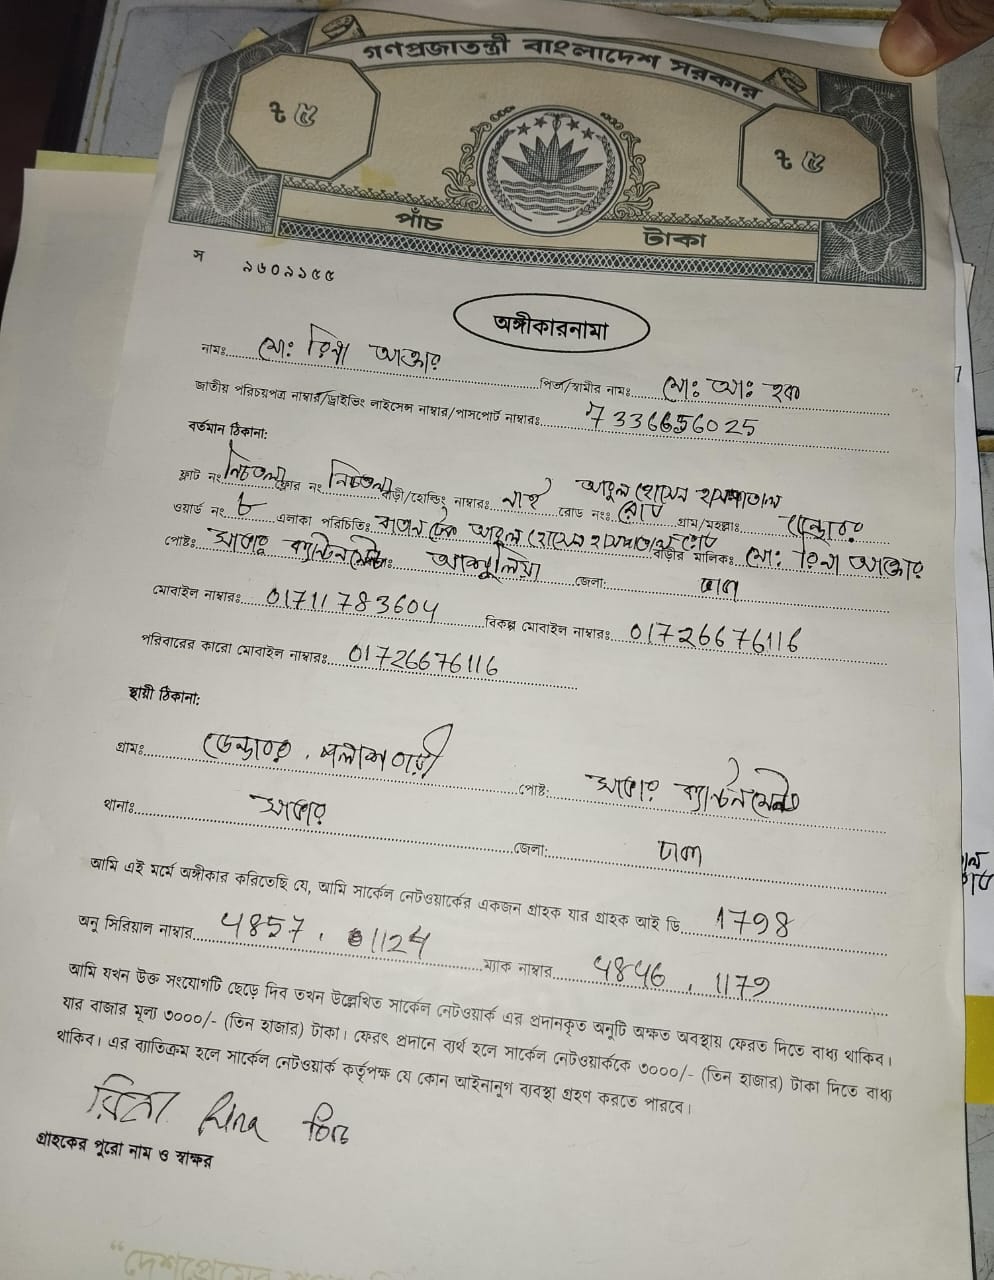 গণপ্রজাতন্ত্রী বাংলাদেশ সরকার
৳ ৫ ৳ ৫
পাঁচ টাকা
স ৯৬০৯১৫৫
অঙ্গীকারনামা
নামঃ মোঃ রিনা আক্তার পিতা/স্বামীর নামঃ মোঃ আঃ হক
জাতীয় পরিচয়পত্র নাম্বার/ড্রাইভিং লাইসেন্স নাম্বার/পাসপোর্ট নাম্বারঃ 7336656025
বর্তমান ঠিকানা:
ফ্লাট নং নিচতলা ফ্লোর নং নিচতলা বাড়ী/হোল্ডিং নাম্বারঃ নাই রোড নংঃ আবুল হোসেন হাসপাতাল রোড গ্রাম/মহল্লাঃ ডেন্ডাবর
ওয়ার্ড নং ৮ এলাকা পরিচিতিঃ আবুল হোসেন হাসপাতাল রোড বাড়ীর মালিকঃ মোঃ রিনা আক্তার
পোষ্টঃ সাভার ক্যান্টনমেন্ট আশুলিয়া জেলা: ঢাকা
মোবাইল নাম্বারঃ 01711783604 বিকল্প মোবাইল নাম্বারঃ 01726676116
পরিবারের কারো মোবাইল নাম্বারঃ 01726676116
স্থায়ী ঠিকানা:
গ্রামঃ ডেন্ডাবর, পলাশবাড়ী পোষ্ট: সাভার ক্যান্টনমেন্ট
থানাঃ সাভার জেলা: ঢাকা
আমি এই মর্মে অঙ্গীকার করিতেছি যে, আমি সার্কেল নেটওয়ার্কের একজন গ্রাহক যার গ্রাহক আই ডি 1798
অনু সিরিয়াল নাম্বার 4857, 1124 ম্যাক নাম্বার 4846, 1179
আমি যখন উক্ত সংযোগটি ছেড়ে দিব তখন উল্লেখিত সার্কেল নেটওয়ার্ক এর প্রদানকৃত অনুটি অক্ষত অবস্থায় ফেরত দিতে বাধ্য থাকিব।
যার বাজার মূল্য ৩০০০/- (তিন হাজার) টাকা। ফেরৎ প্রদানে ব্যর্থ হলে সার্কেল নেটওয়ার্ককে ৩০০০/- (তিন হাজার) টাকা দিতে বাধ্য
থাকিব। এর ব্যতিক্রম হলে সার্কেল নেটওয়ার্ক কর্তৃপক্ষ যে কোন আইনানুগ ব্যবস্থা গ্রহণ করতে পারবে।
রিনা Rina
গ্রাহকের পুরো নাম ও স্বাক্ষর